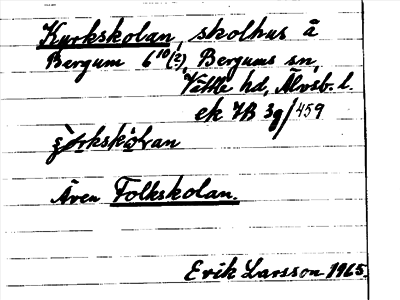 Kyrkskolan, skolhus å
Bergum 6¹⁰(2), Bergums sn,
Vättle hd, Älvsb. l.
ek JB 3g/459
Även Folkskolan.
Erik Larsson 1965.